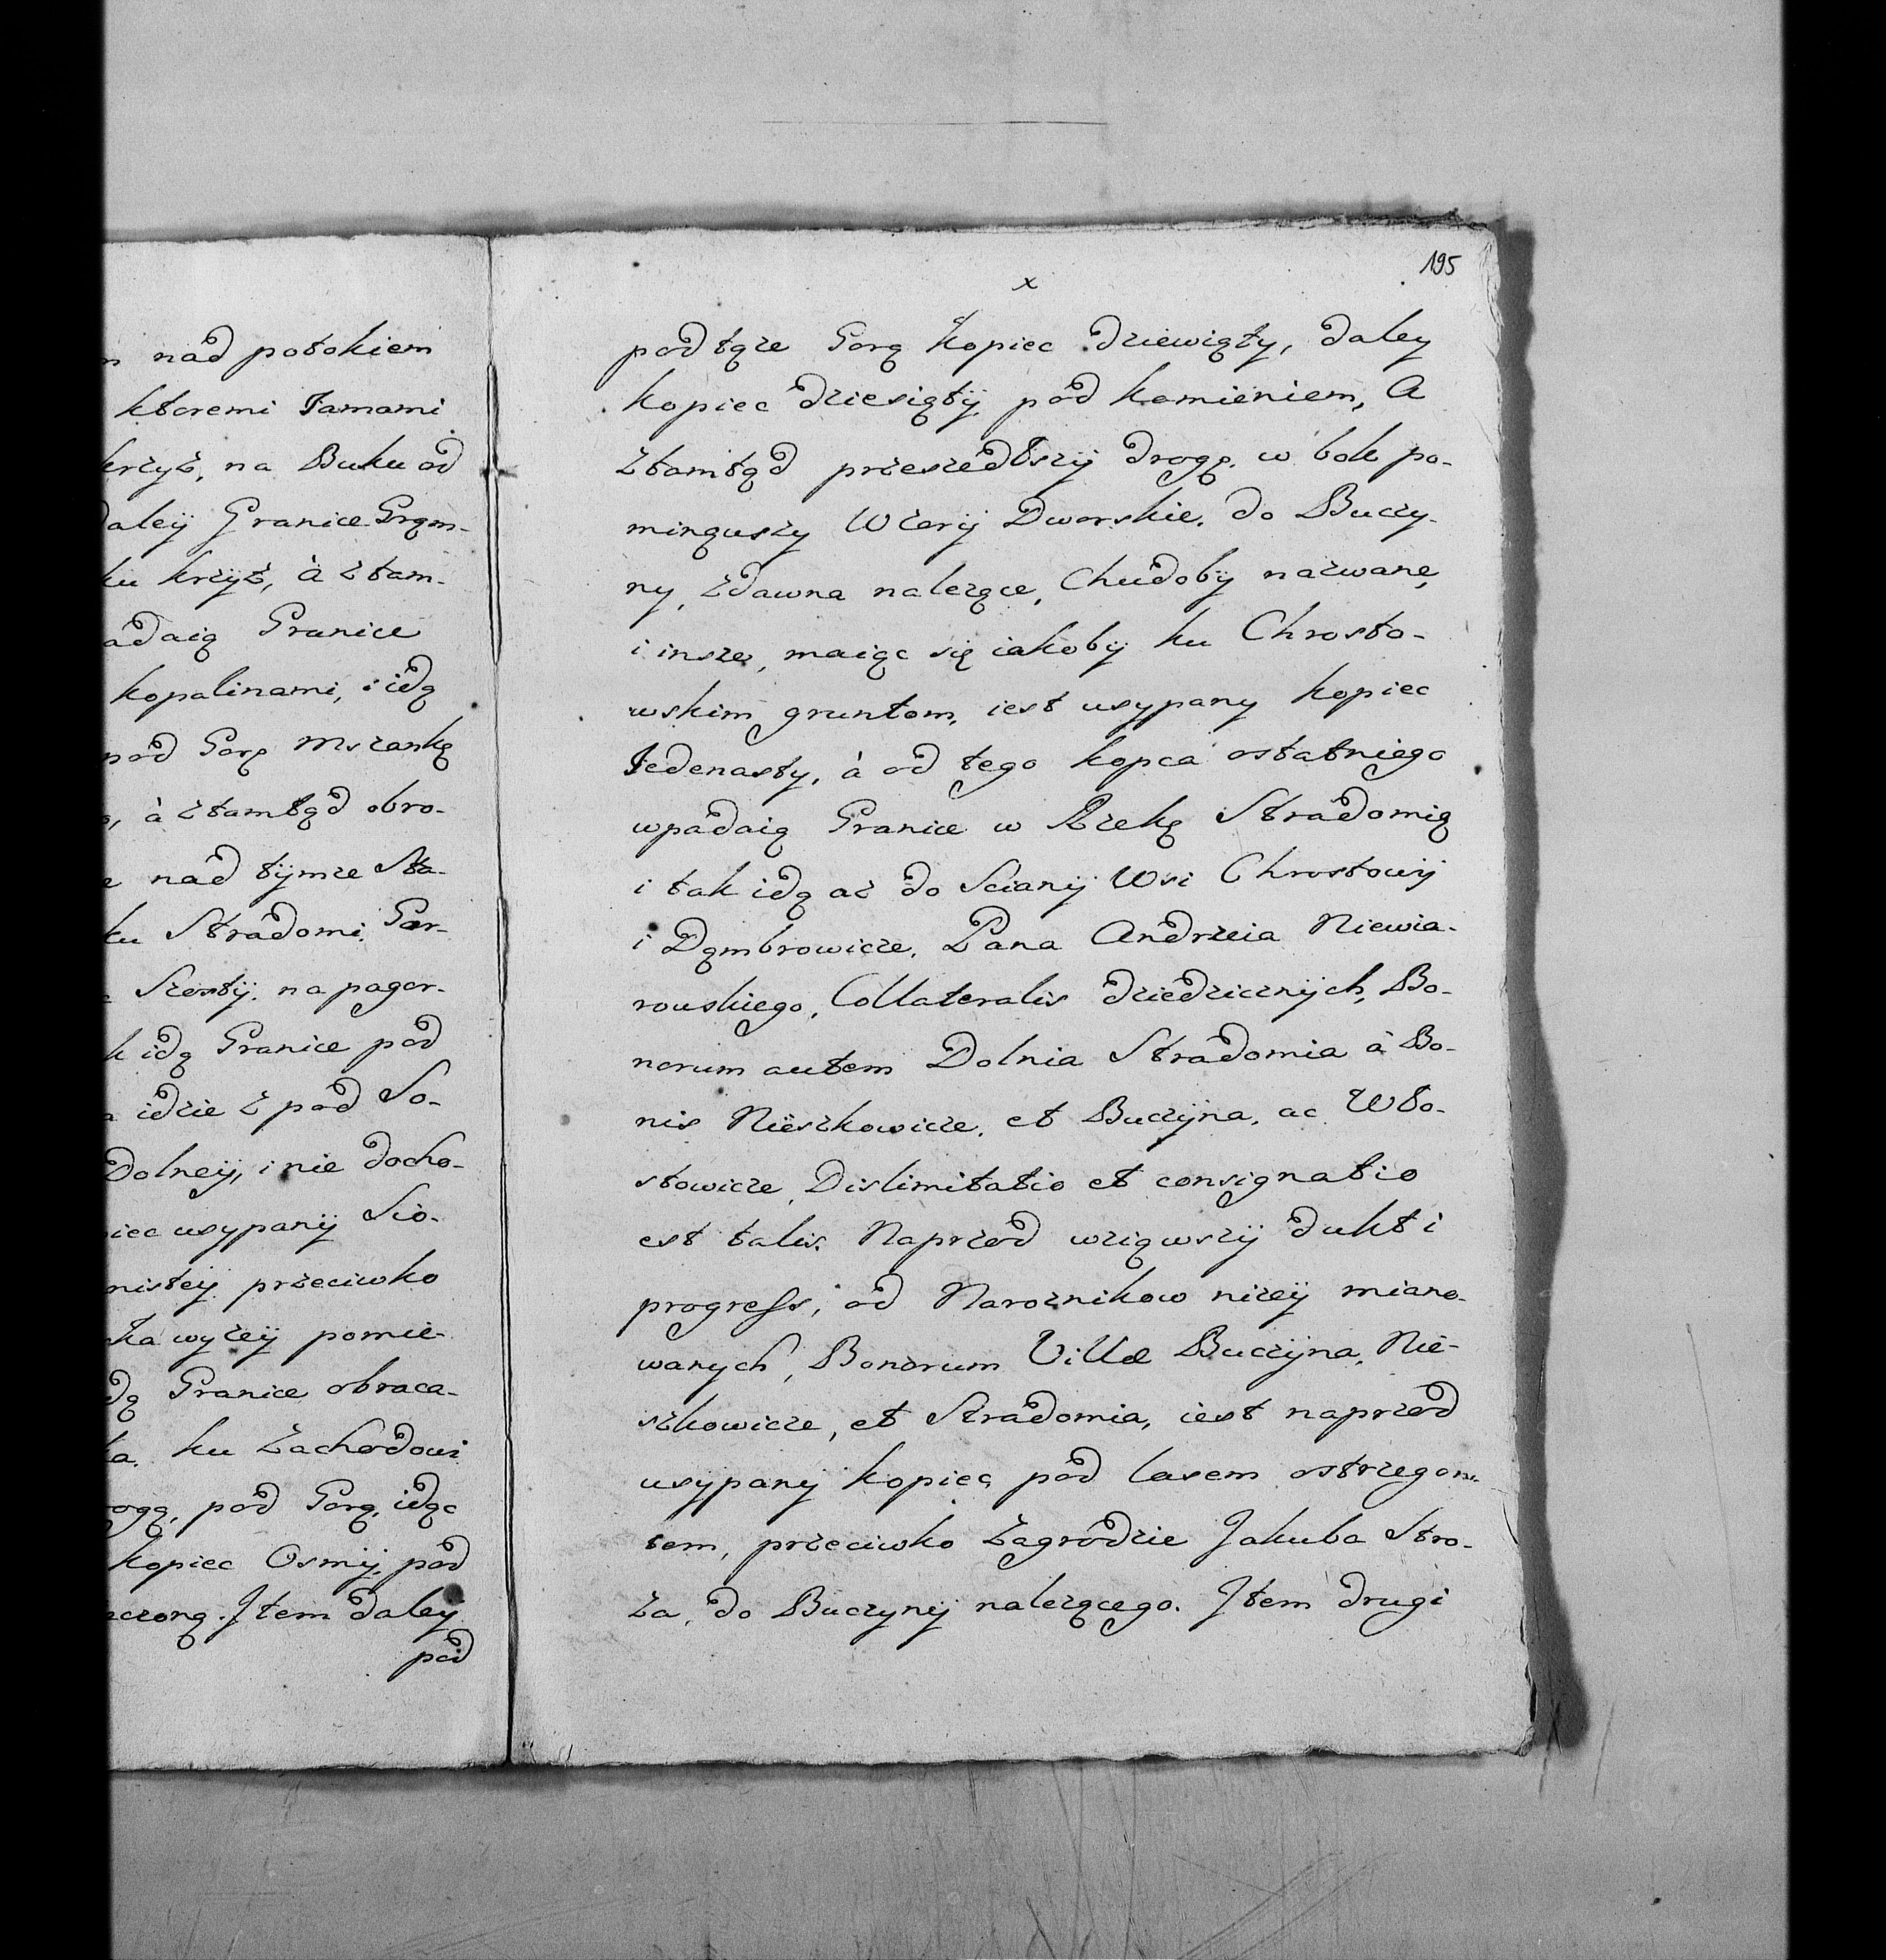 n nad potokiem
ktoremi Jamami
krzyż, na Buku od
daley Granice Grąm-
ku krzyż, à ztam-
adaią Granice
kopalinami, i idą
pod Gorę Mszankę
à ztamtąd obro-
nad tymże Sta-
ku Stradomi Gor-
Szosty na pagor-
k idą Granice pod
idzie z pod So-
Dolney, i nie docho-
piec usypany Sio-
nistey przeciwko
ka wyżey pomie-
dą Granice obraca-
ka ku Zachodowi
rogą, pod Gorą, idąc
kopiec Osmy, pod
czoną. Item daley
pod
195
x
pod tąże Gorą kopiec dziewiąty, daley
kopiec dziesiąty pod kamieniem, A
ztamtąd przeszedłszy drogę, w bok po-
minąwszy Wzory Dworskie, do Buczy-
ny, zdawna należące, Chudoby nazwane,
i insze, maiąc się iakoby ku Chrosto-
wskim gruntom, iest usypany kopiec
Jedenasty, à od tego kopca ostatniego
wpadaią Granice w Rzekę Stradomią
i tak idą aż do Sciany Wsi Chrostowy
i Dąmbrowicze, Pana Andrzeia Niewia-
rowskiego, Collateralis dziedzicznych, Bo-
norum autem Dolnia Stradomia à Bo-
nis Nieszkowicze, et Buczyna, ac Wło-
stowicze, Dislimitatio et consignatio
est talis. Naprzod wziąwszy dukt i
progress, od Narożnikow niżey miano-
wanych, Bonorum Villæ Buczyna, Nie-
szkowicze, et Stradomia, iest naprzod
usypany kopiec pod lasem
tem, przeciwko Zagrodzie Jakuba Stro-
ża, do Buczyny należącego. Item drugi